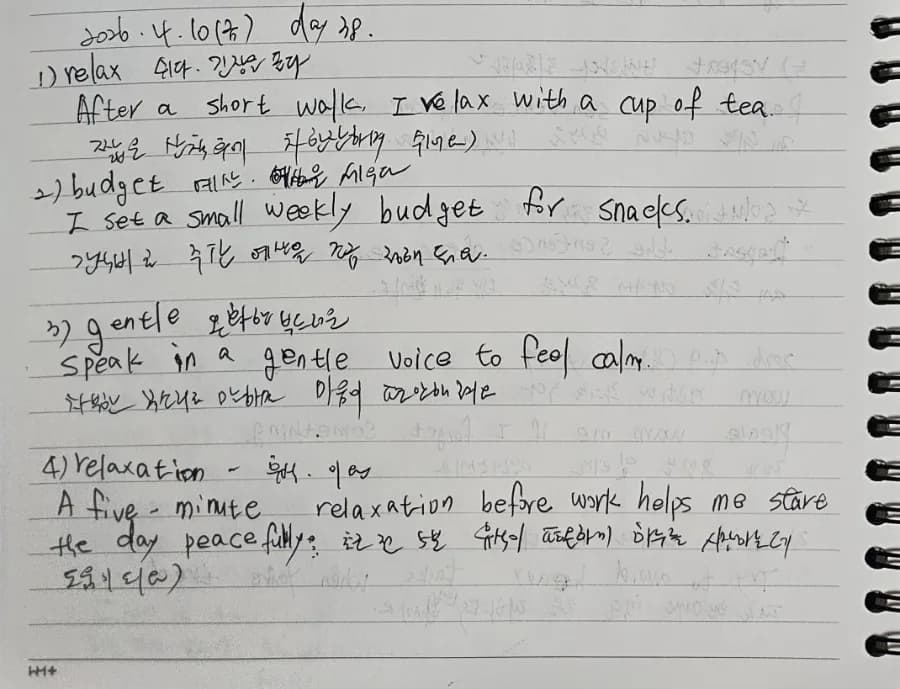 2026. 4. 10(금) day 38.
1) relax 쉬다. 긴장을 풀다
After a short walk, I relax with a cup of tea.
짧은 산책 후에 차 한잔하며 쉬어요)
2) budget 예산. 예산을 세우다
I set a small weekly budget for snacks.
간식비로 주간 예산을 조금 정해 둬요.
3) gentle 온화한 부드러운
speak in a gentle voice to feel calm.
차분한 목소리로 말하면 마음이 편안해져요
4) relaxation - 휴식. 이완
A five-minute relaxation before work helps me start
the day peacefully. 전 5분 휴식이 하루를 시작하는데
도움이 되요)